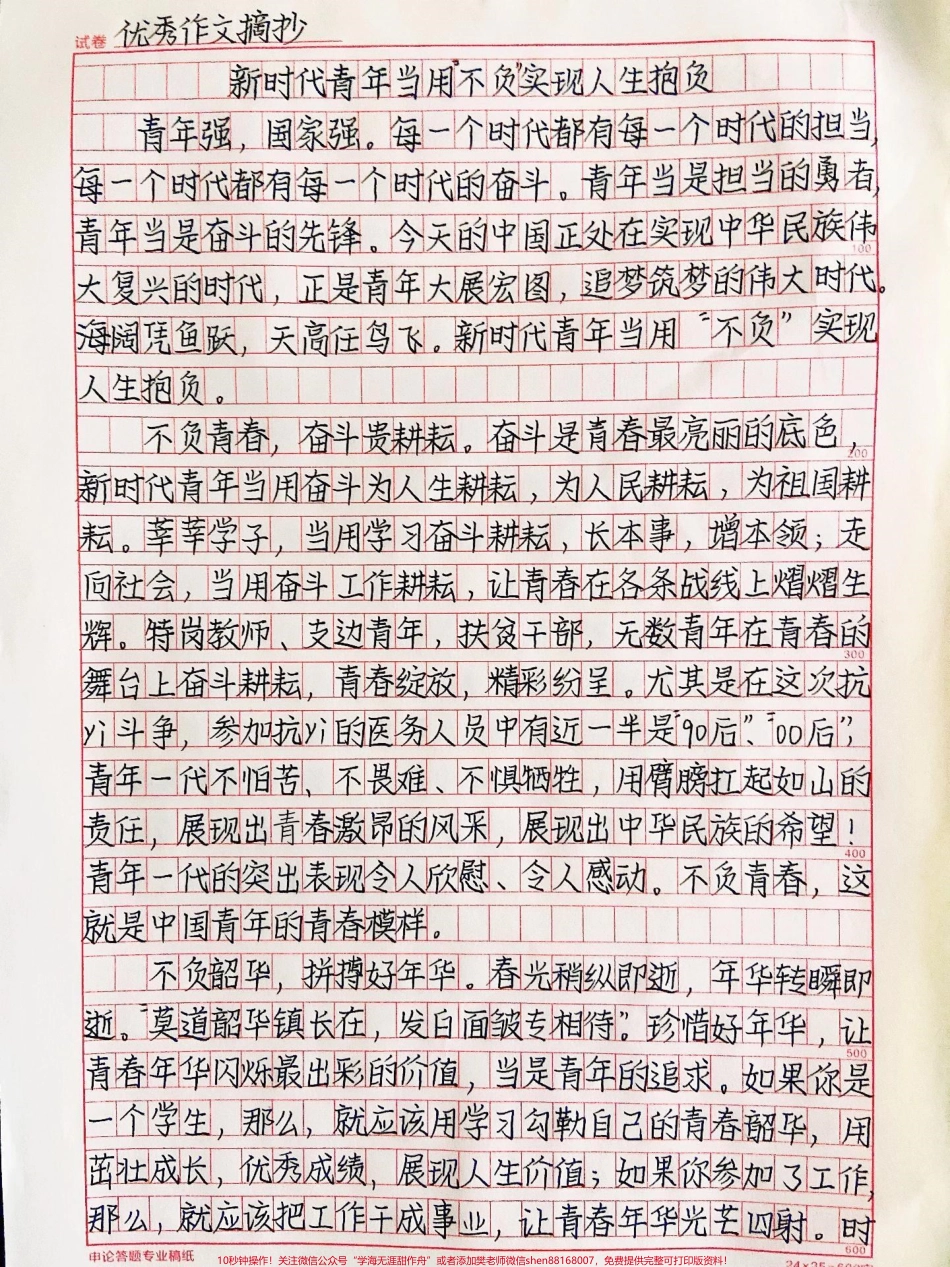 试卷 优秀作文摘抄
新时代青年当用"不负"实现人生抱负
青年强，国家强。每一个时代都有每一个时代的担当，
每一个时代都有每一个时代的奋斗。青年当是担当的勇者，
青年当是奋斗的先锋。今天的中国正处在实现中华民族伟
100
大复兴的时代，正是青年大展宏图，追梦筑梦的伟大时代。
海阔凭鱼跃，天高任鸟飞。新时代青年当用“不负”实现
人生抱负。
不负青春，奋斗贵耕耘。奋斗是青春最亮丽的底色，
200
新时代青年当用奋斗为人生耕耘，为人民耕耘，为祖国耕
耘。莘莘学子，当用学习奋斗耕耘，长本事，增本领；走
向社会，当用奋斗工作耕耘，让青春在各条战线上熠熠生
辉。特岗教师、支边青年，扶贫干部，无数青年在青春的
300
舞台上奋斗耕耘，青春绽放，精彩纷呈。尤其是在这次抗
yi斗争，参加抗yi的医务人员中有近一半是“90后”、“00后”，
青年一代不怕苦、不畏难、不惧牺牲，用臂膀扛起如山的
责任，展现出青春激昂的风采，展现出中华民族的希望！
400
青年一代的突出表现令人欣慰、令人感动。不负青春，这
就是中国青年的青春模样。
不负韶华，拼搏好年华。春光稍纵即逝，年华转瞬即
逝。“莫道韶华镇长在，发白面皱专相待”。珍惜好年华，让
500
青春年华闪烁最出彩的价值，当是青年的追求。如果你是
一个学生，那么，就应该用学习勾勒自己的青春韶华，用
茁壮成长，优秀成绩，展现人生价值；如果你参加了工作，
那么，就应该把工作干成事业，让青春年华光芒四射。时
600
申论答题专业稿纸
24×25=600
10秒钟操作！关注微信公众号“学海无涯甜作舟”或者添加樊老师微信shen88168007，免费提供完整可打印版资料！